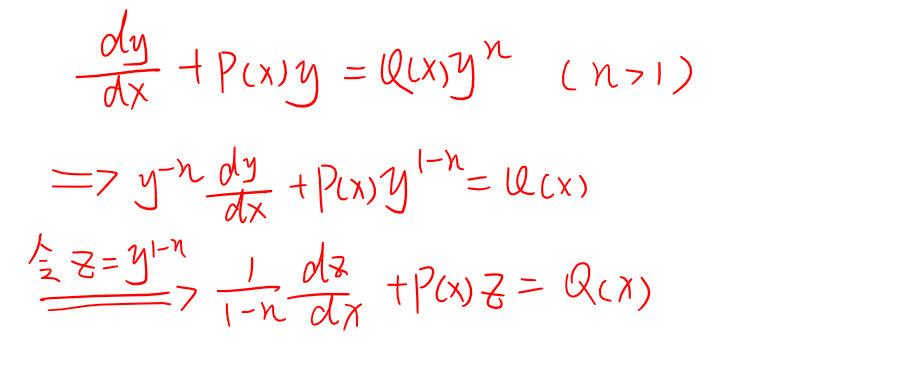 dy/dx + P(x)y = Q(x)yⁿ (n>1)
⇒ y⁻ⁿ dy/dx + P(x)y¹⁻ⁿ = Q(x)
令 z = y¹⁻ⁿ ⇒ 1/(1-n) dz/dx + P(x)z = Q(x)